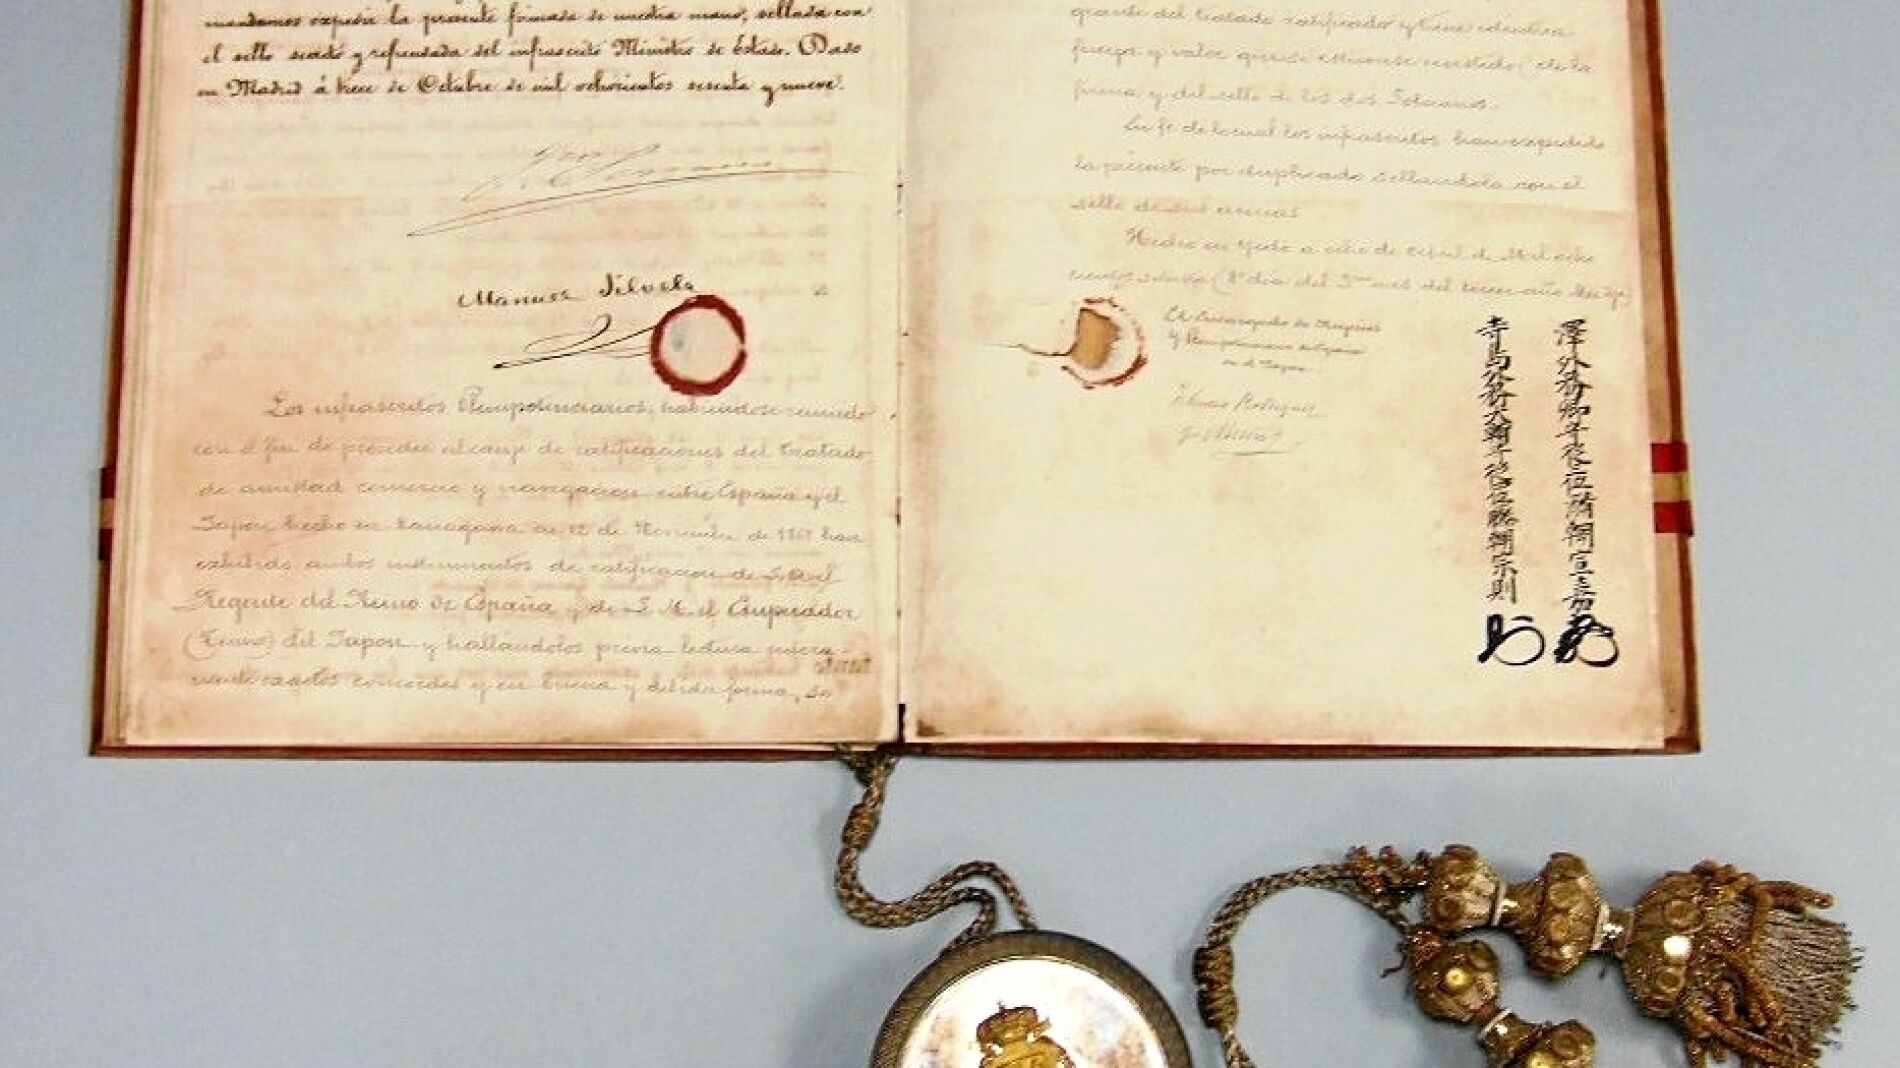 mandamos expedir la presente firmada de nuestra mano, sellada con
el sello secreto y refrendada del infrascrito Ministro de Estado. Dado
en Madrid á trece de Octubre de mil ochocientos sesenta y nueve.
Manuel Silvela
Los infrascritos Plenipotenciarios, habiendose reunido
con el fin de proceder al canje de ratificaciones del tratado
de amistad comercio y navegacion entre España y el
Japon, hecho en Kanagawa en 12 de Noviembre de 1868 han
exhibido ambos instrumentos de ratificacion de S. A. el
Regente del Reino de España y de S. M. el Emperador
(Tenno) del Japon y hallandolos previa lectura
exactos concordes y en buena y debida forma, se
del tratado ratificado y tiene identica
fuerza y valor que si estuviese revestido de la
firma y del sello de los dos Soberanos.
En fe de lo cual los infrascritos han expedido
la presente por duplicado sellandola con el
sello de sus armas
Hecho en Yedo a ocho de Abril de Mil ocho
cientos setenta (8º dia del 3er mes del tercer año Meiji)
El Encargado de Negocios
y Plenipotenciario de España
en el Japon
Tiburcio Rodriguez
y Muñoz
澤外務卿従位清原宣嘉
寺島外務大輔従位藤原宗則